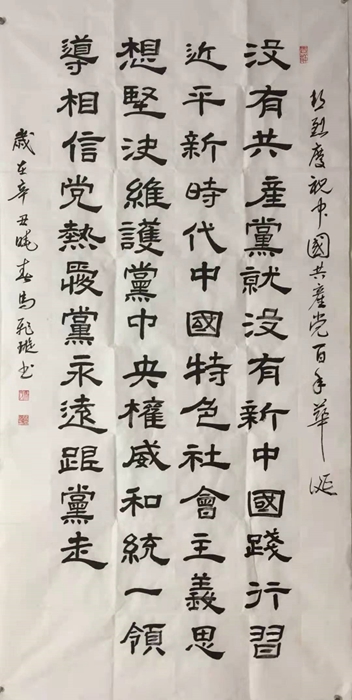 热烈慶祝中國共產党百年華诞
没有共産黨就没有新中國踐行習
近平新時代中國特色社會主義思
想堅決維護黨中央權威和統一領
導相信党熱愛黨永遠跟黨走
歲在辛丑晓春馬璇书